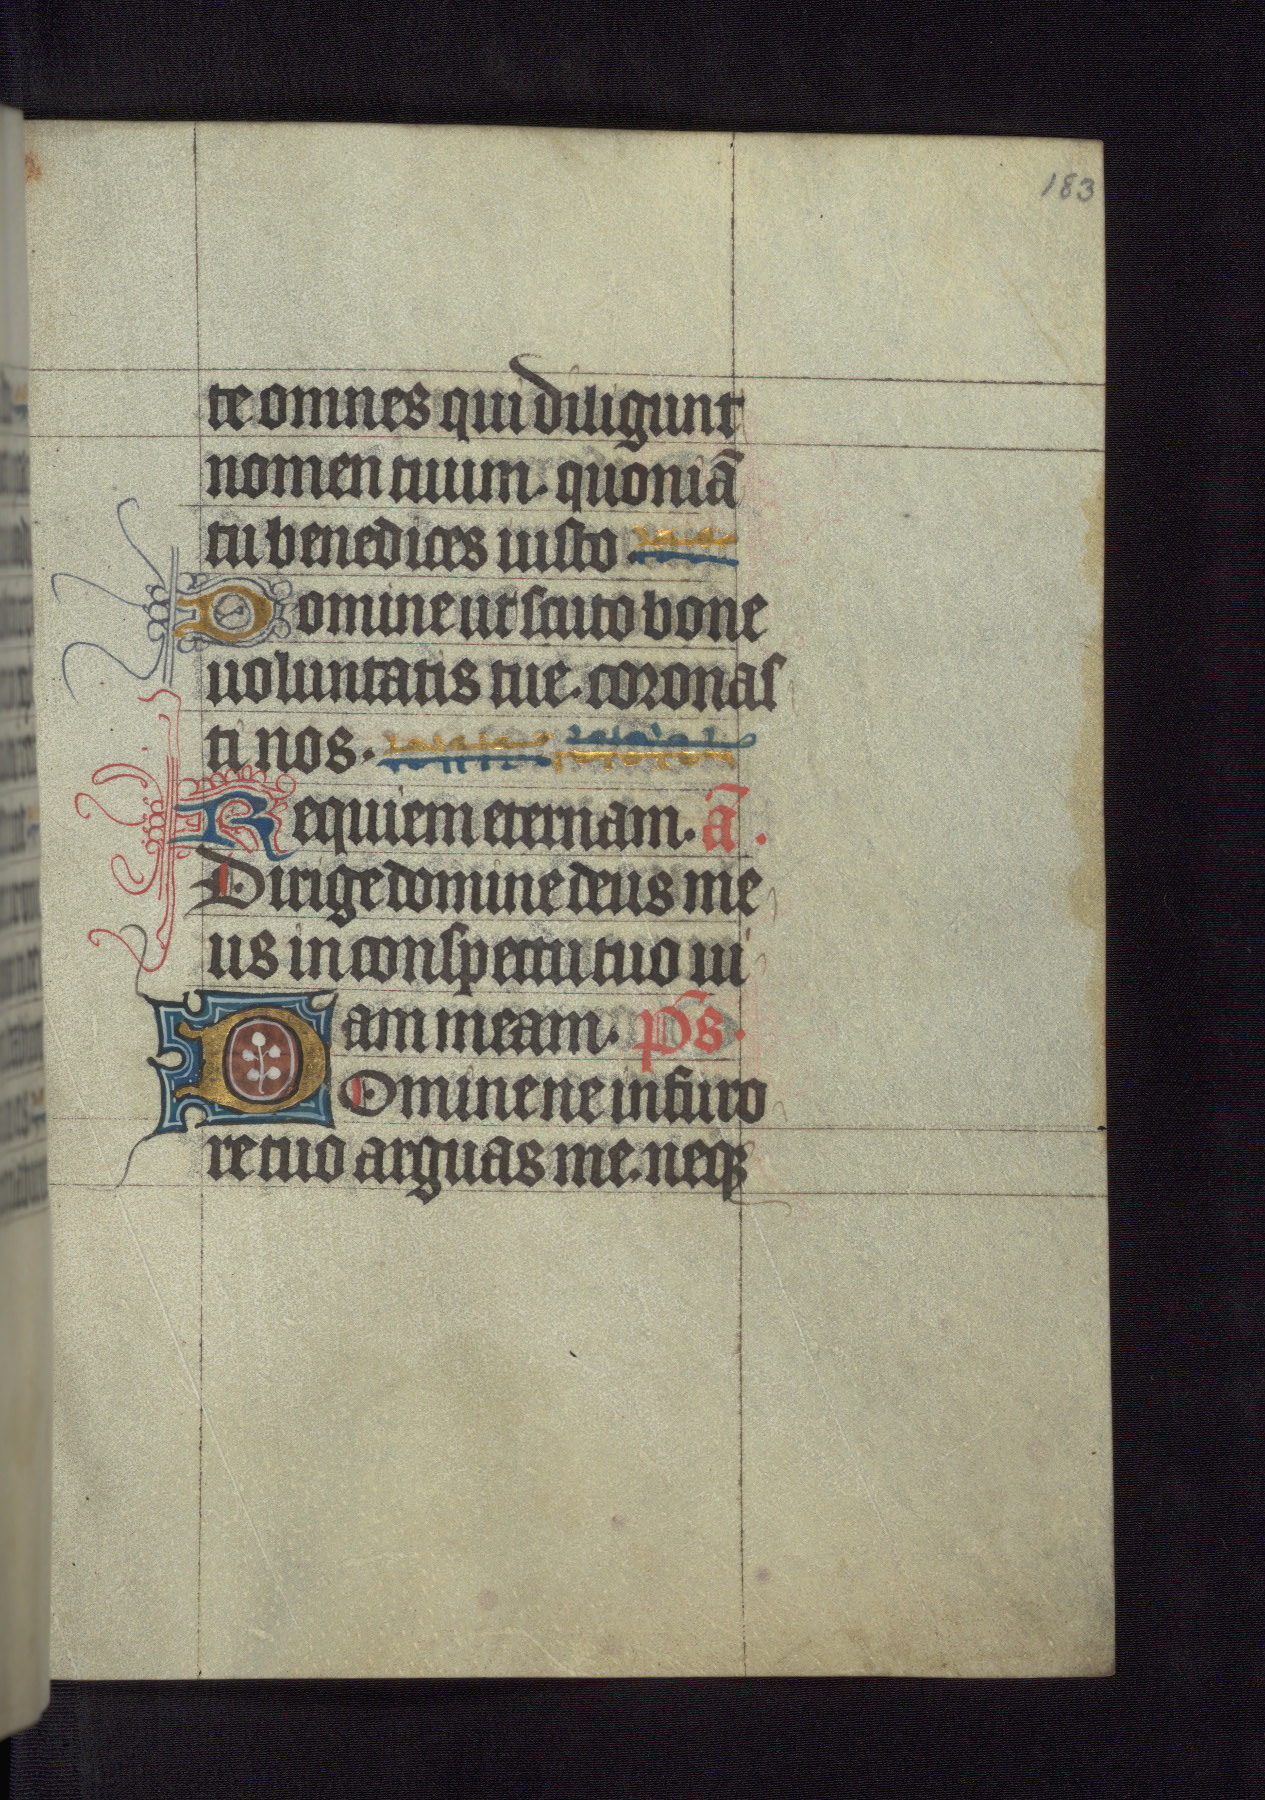 183
te omnes qui diligunt
nomen tuum. quoniā
tu benedices iusto
Domine ut scuto bone
uoluntatis tue. coronas
ti nos.
Requiem eternam. ā.
Dirige domine deus me
us in conspectu tuo ui
am meam. p̄s.
Domine ne in furo
re tuo arguas me. neqꝫ